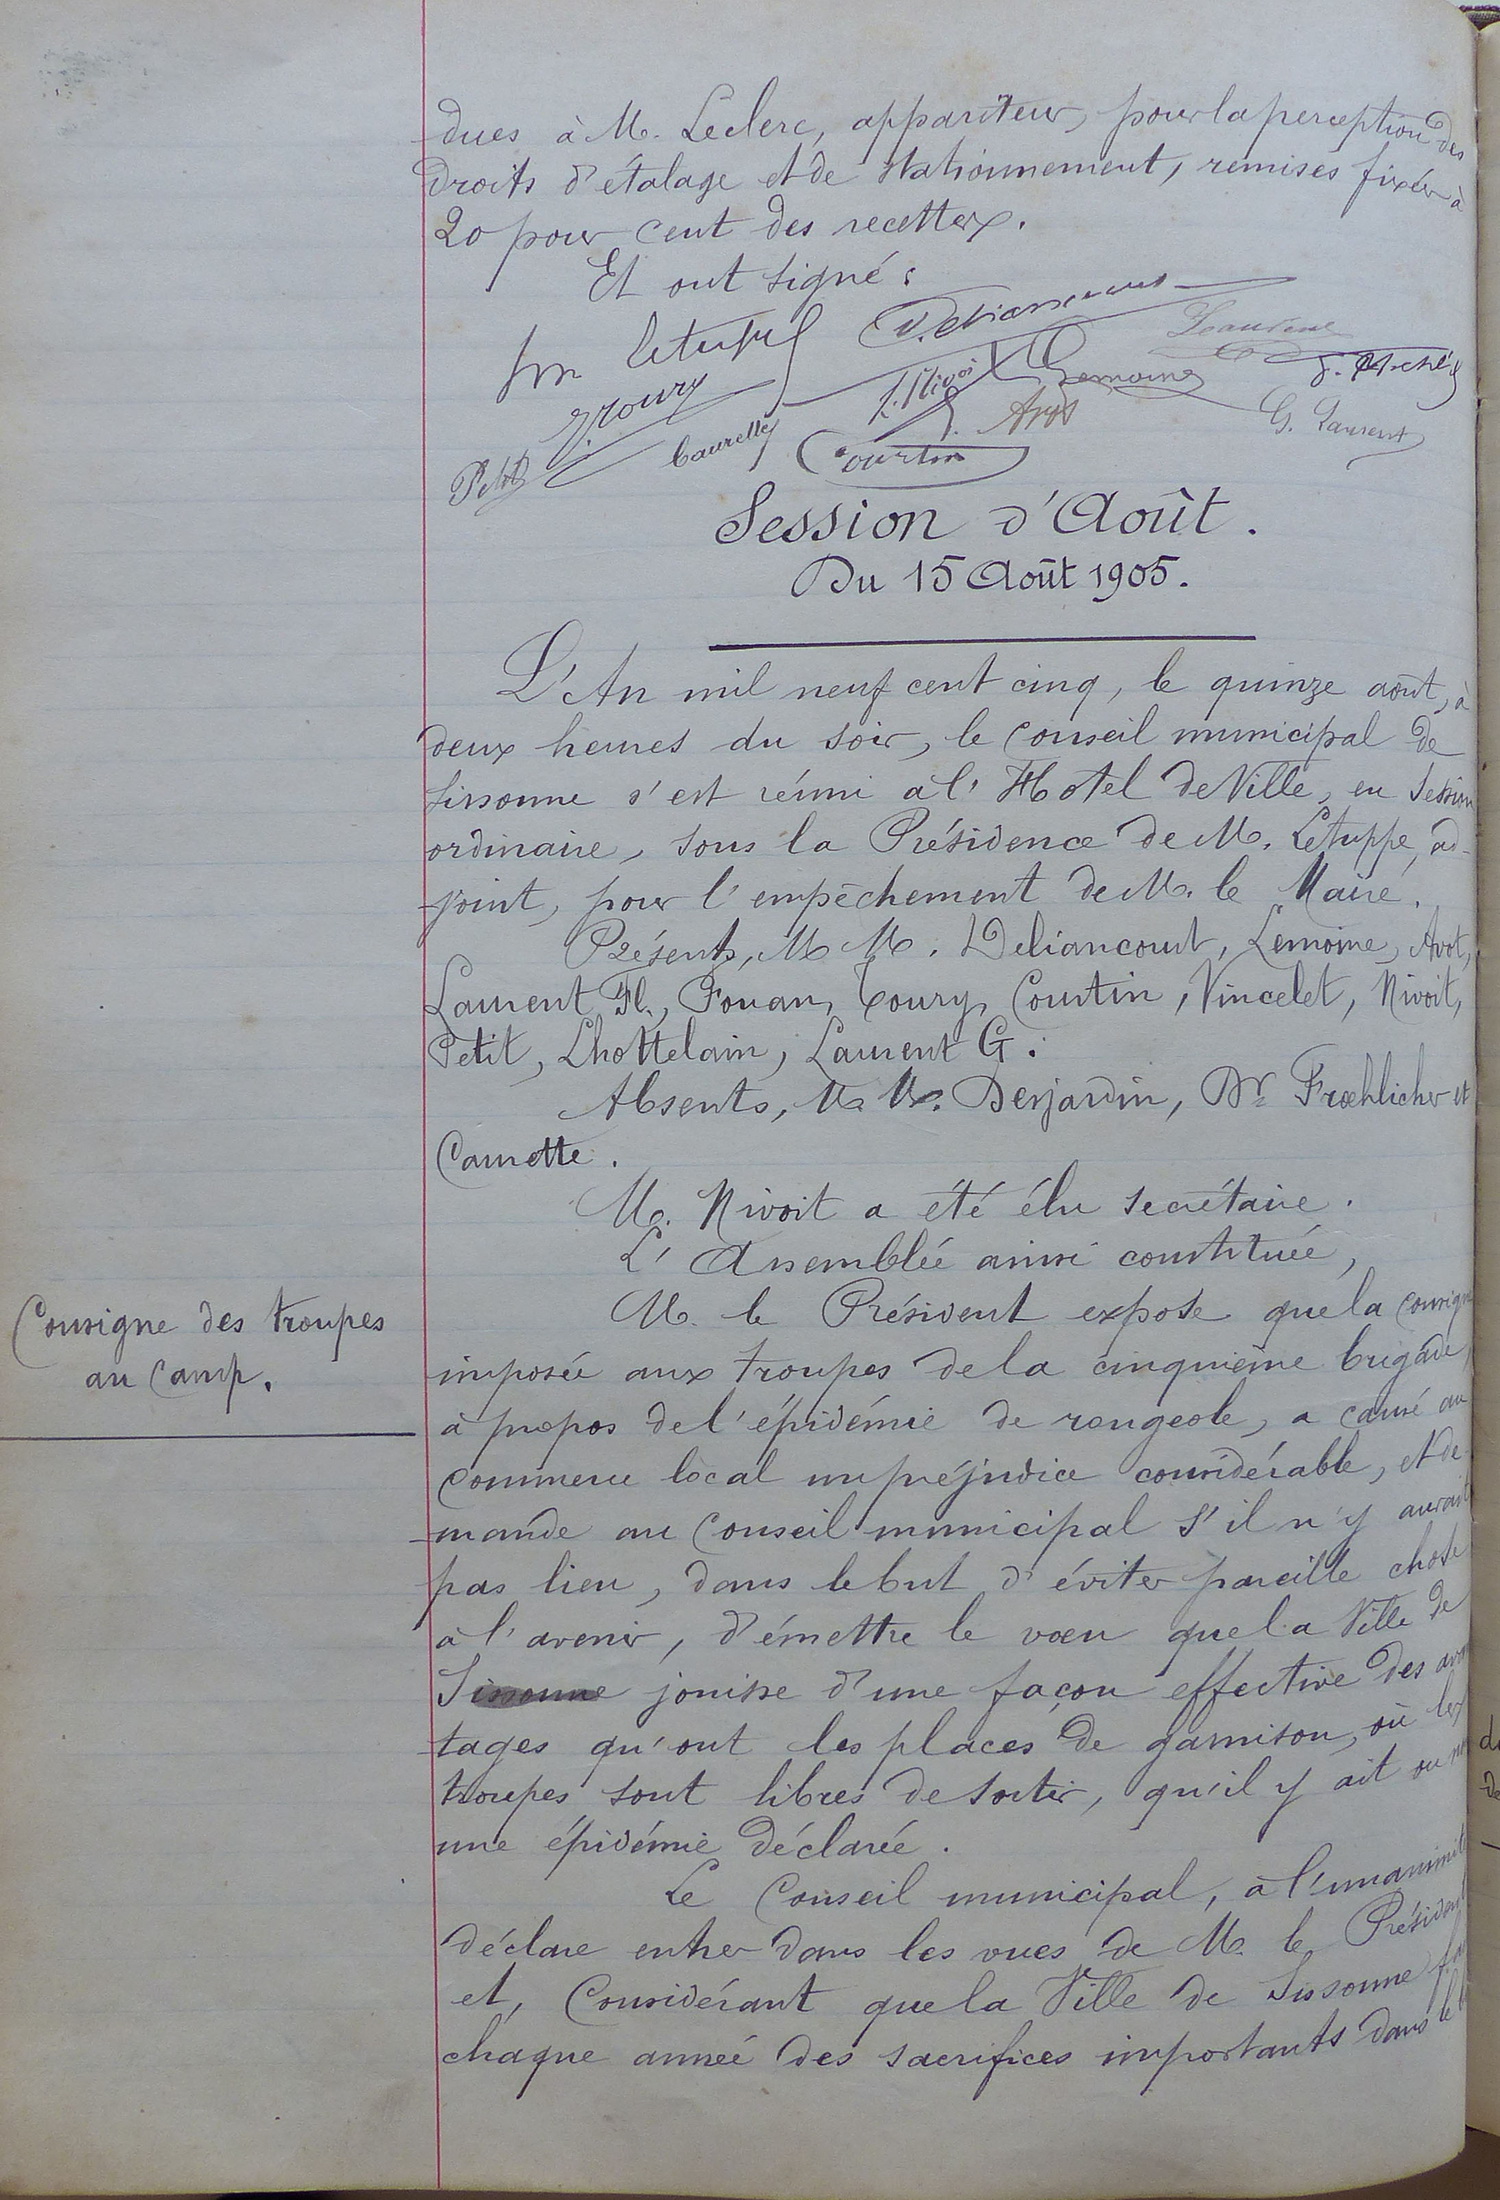 dues à M. Leclerc, appariteur, pour la perception des
droits d'étalage et de stationnement, remises fixées à
20 pour cent des recettes.
Et ont signé :
Letuppe Deliancourt
Toury Nivoit Lemoine
Avot G. Laurent
Petit Caurette Courtin
Session d'Août.
Du 15 Août 1905.
L'An mil neuf cent cinq, le quinze août, à
deux heures du soir, le Conseil municipal de
Sissonne s'est réuni à l'Hotel de Ville, en Session
ordinaire, sous la Présidence de M. Letuppe, ad-
joint, pour l'empêchement de M. le Maire.
Présents, M M. Deliancourt, Lemoine, Avot,
Laurent Fl., Fouan, Toury, Courtin, Vincelet, Nivoit,
Petit, Lhottelain, Laurent G.
Absents, M. M. Desjardin, Dr Frœhlicher et
Caurette.
M. Nivoit a été élu secrétaire.
L'Assemblée ainsi constituée,
M. le Président expose que la consigne
imposée aux troupes de la cinquième brigade
à propos de l'épidémie de rougeole, a causé au
commerce local un préjudice considérable, et de-
mande au Conseil municipal s'il n'y aurait
pas lieu, dans le but d'éviter pareille chose
à l'avenir, d'émettre le vœu que la Ville de
Sissonne jouisse d'une façon effective des avan
tages qu'ont les places de garnison, où les
troupes sont libres de sortir, qu'il y ait ou non
une épidémie déclarée.
Le Conseil municipal, à l'unanimité
déclare entrer dans les vues de M. le Président
et, Considérant que la Ville de Sissonne
chaque année des sacrifices importants dans le
Consigne des troupes
au Camp.